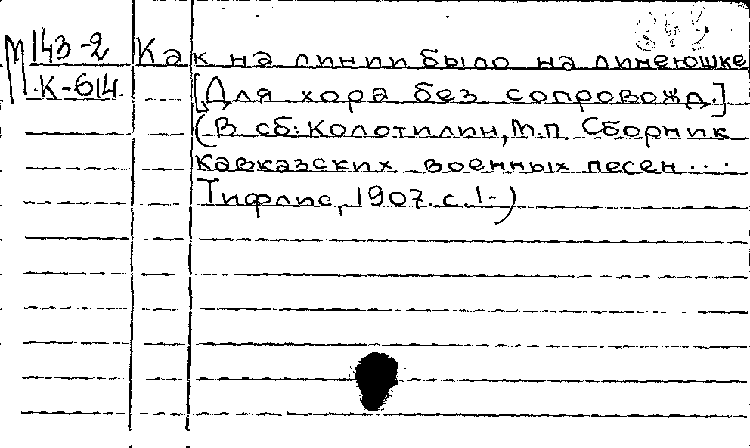 М 143-2 Как на линии было на линеюшке
К-614 [Для хора без сопровожд.]
(В сб: Колотилин, М.П. Сборник
кавказских военных песен...
Тифлис, 1907. с. 1-)